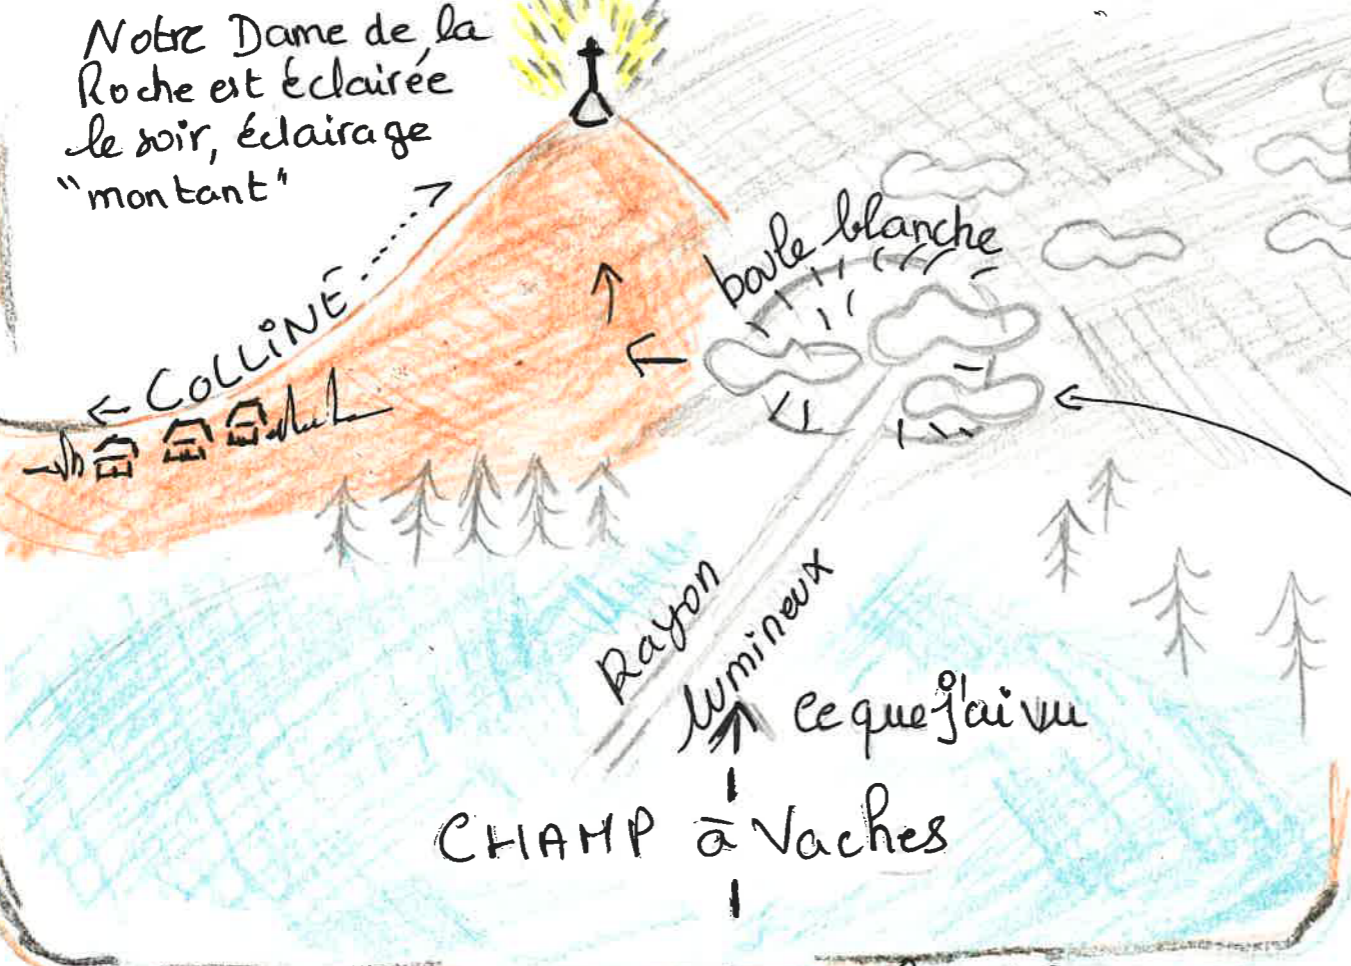 Notre Dame de la
Roche est éclairée
le soir, éclairage
"montant"
COLLINE
boule blanche
Rayon
lumineux
ce que j'ai vu
CHAMP à Vaches